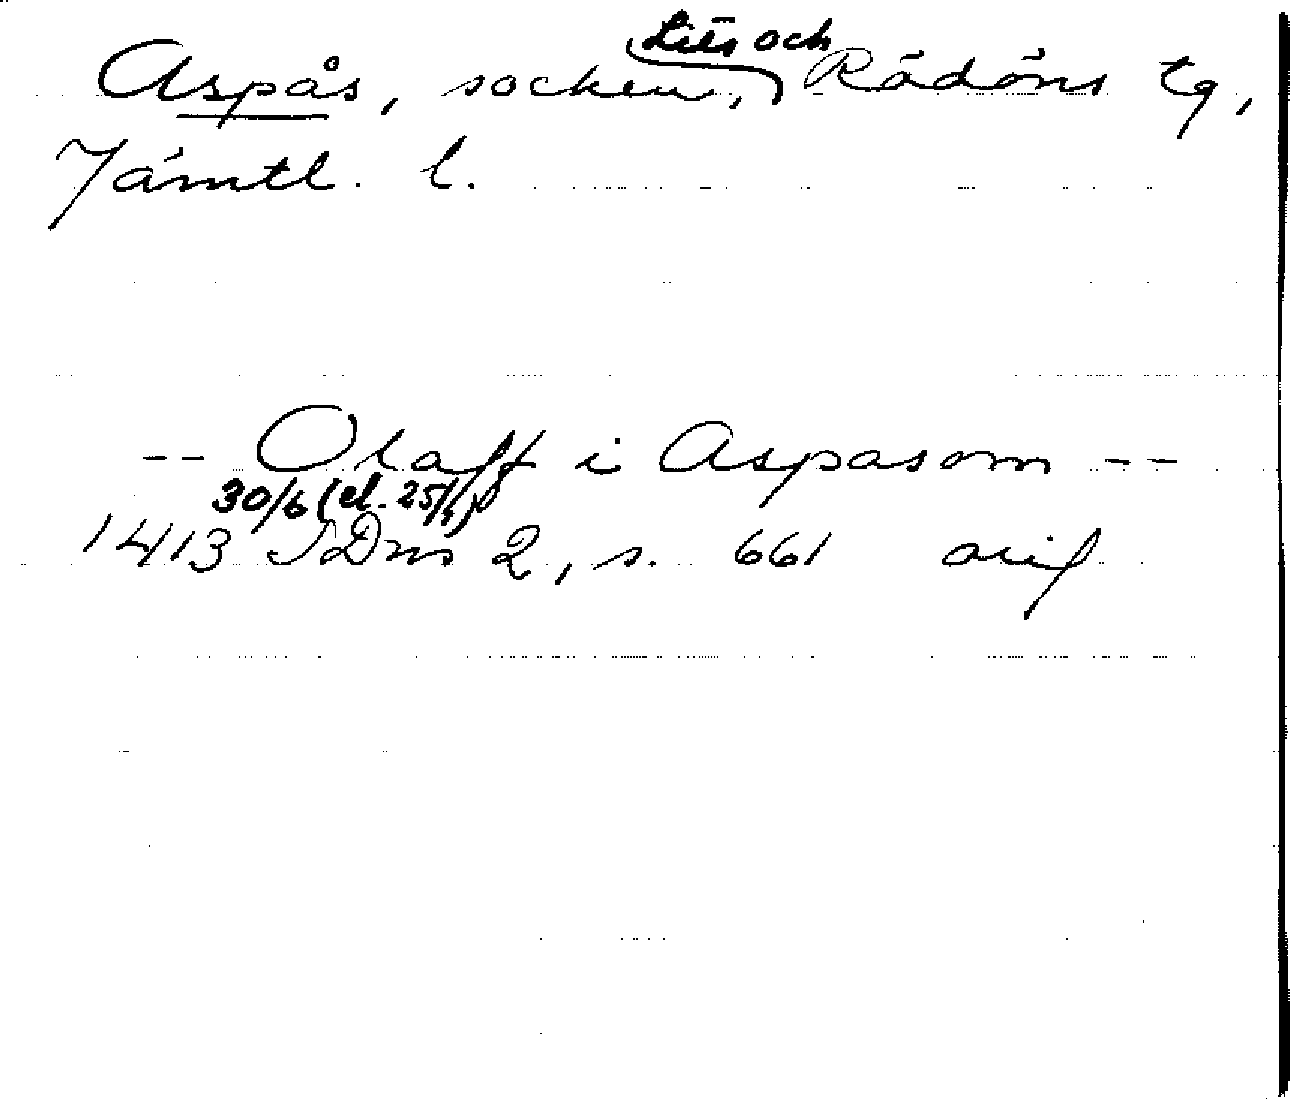 Aspås, socken, Lits och Rödöns tg,
Jämtl. l.
-- Olaff i Aspasom --
30/6 (el. 25/1)
1413 SDns 2, s. 661 orig